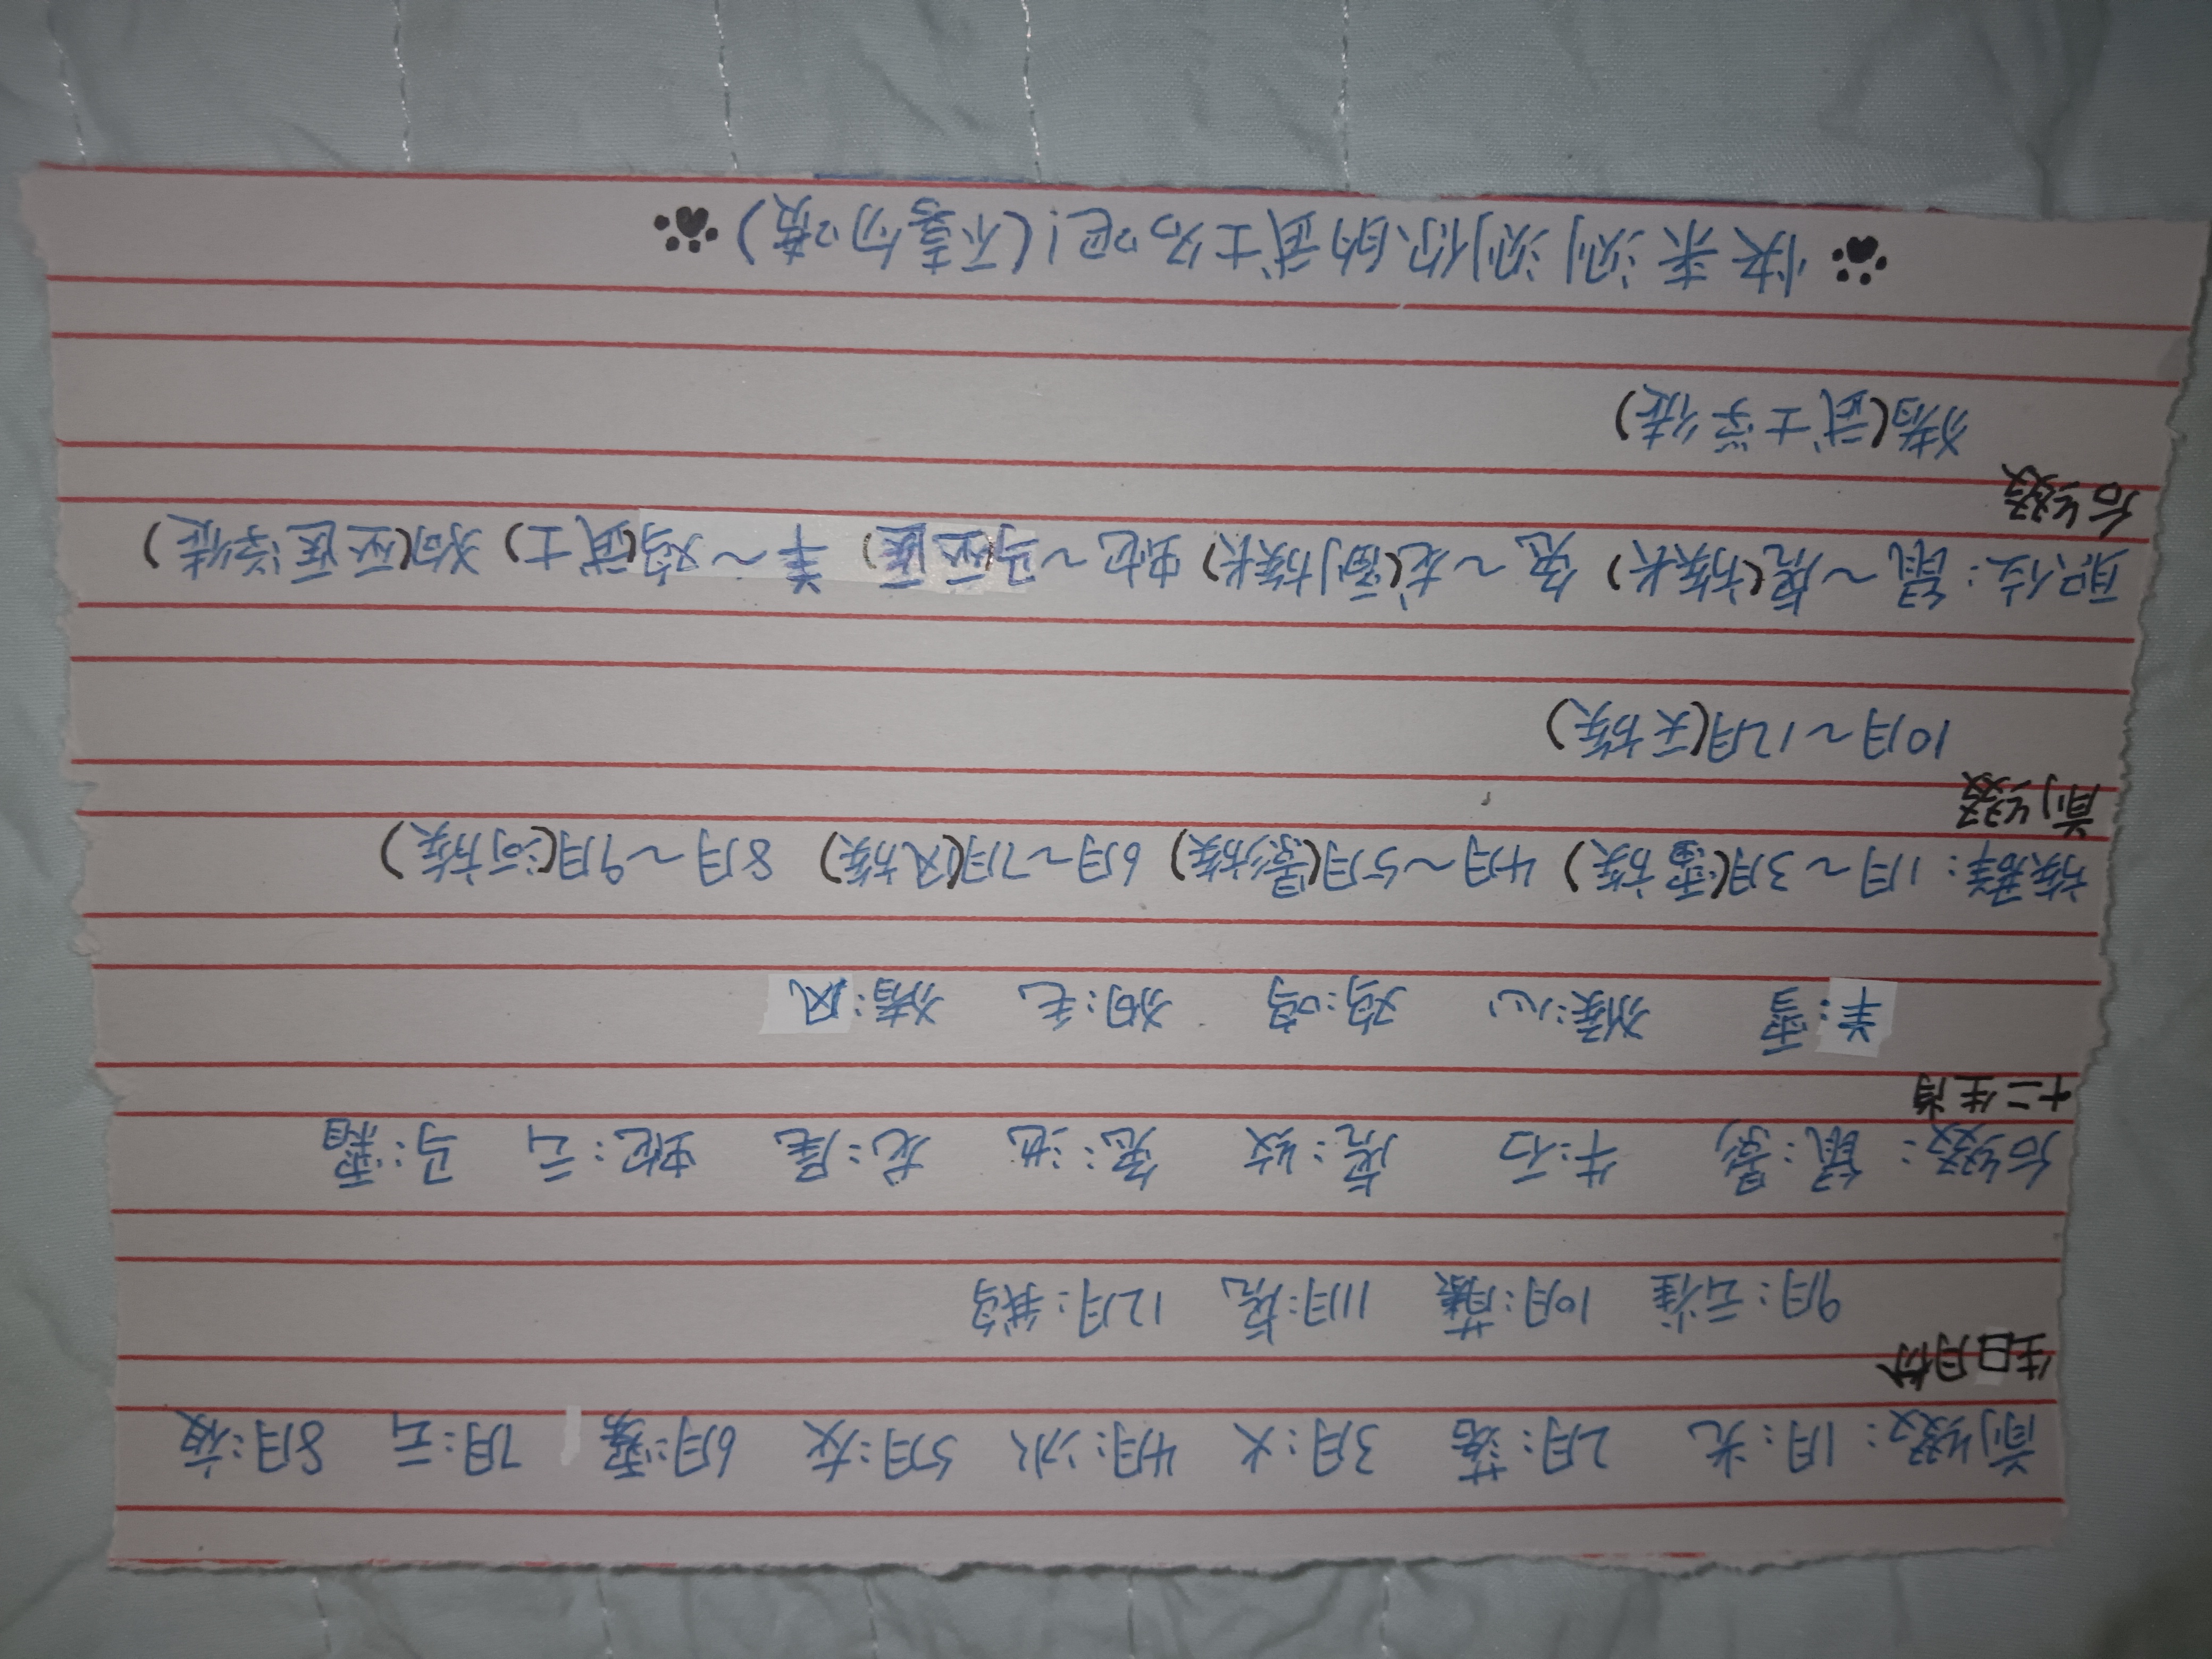 前缀：1月：光 2月：落 3月：火 4月：冰 5月：灰 6月：雾 7月：云 8月：夜
生日月份
9月：云雀 10月：藤 11月：虎 12月：鹅
后缀：鼠：影 牛：石 虎：纹 兔：池 龙：尾 蛇：云 马：霜
十二生肖
羊：雪 猴：心 鸡：鸣 狗：毛 猪：风
族群：1月～3月(雷族) 4月～5月(影族) 6月～7月(风族) 8月～9月(河族)
前缀
10月～12月(天族)
职位：鼠～虎(族长) 兔～龙(副族长) 蛇～马(巫医) 羊～鸡(武士) 狗(巫医学徒)
后缀
猪(武士学徒)
快来测测你的武士名吧！(不喜勿喷)